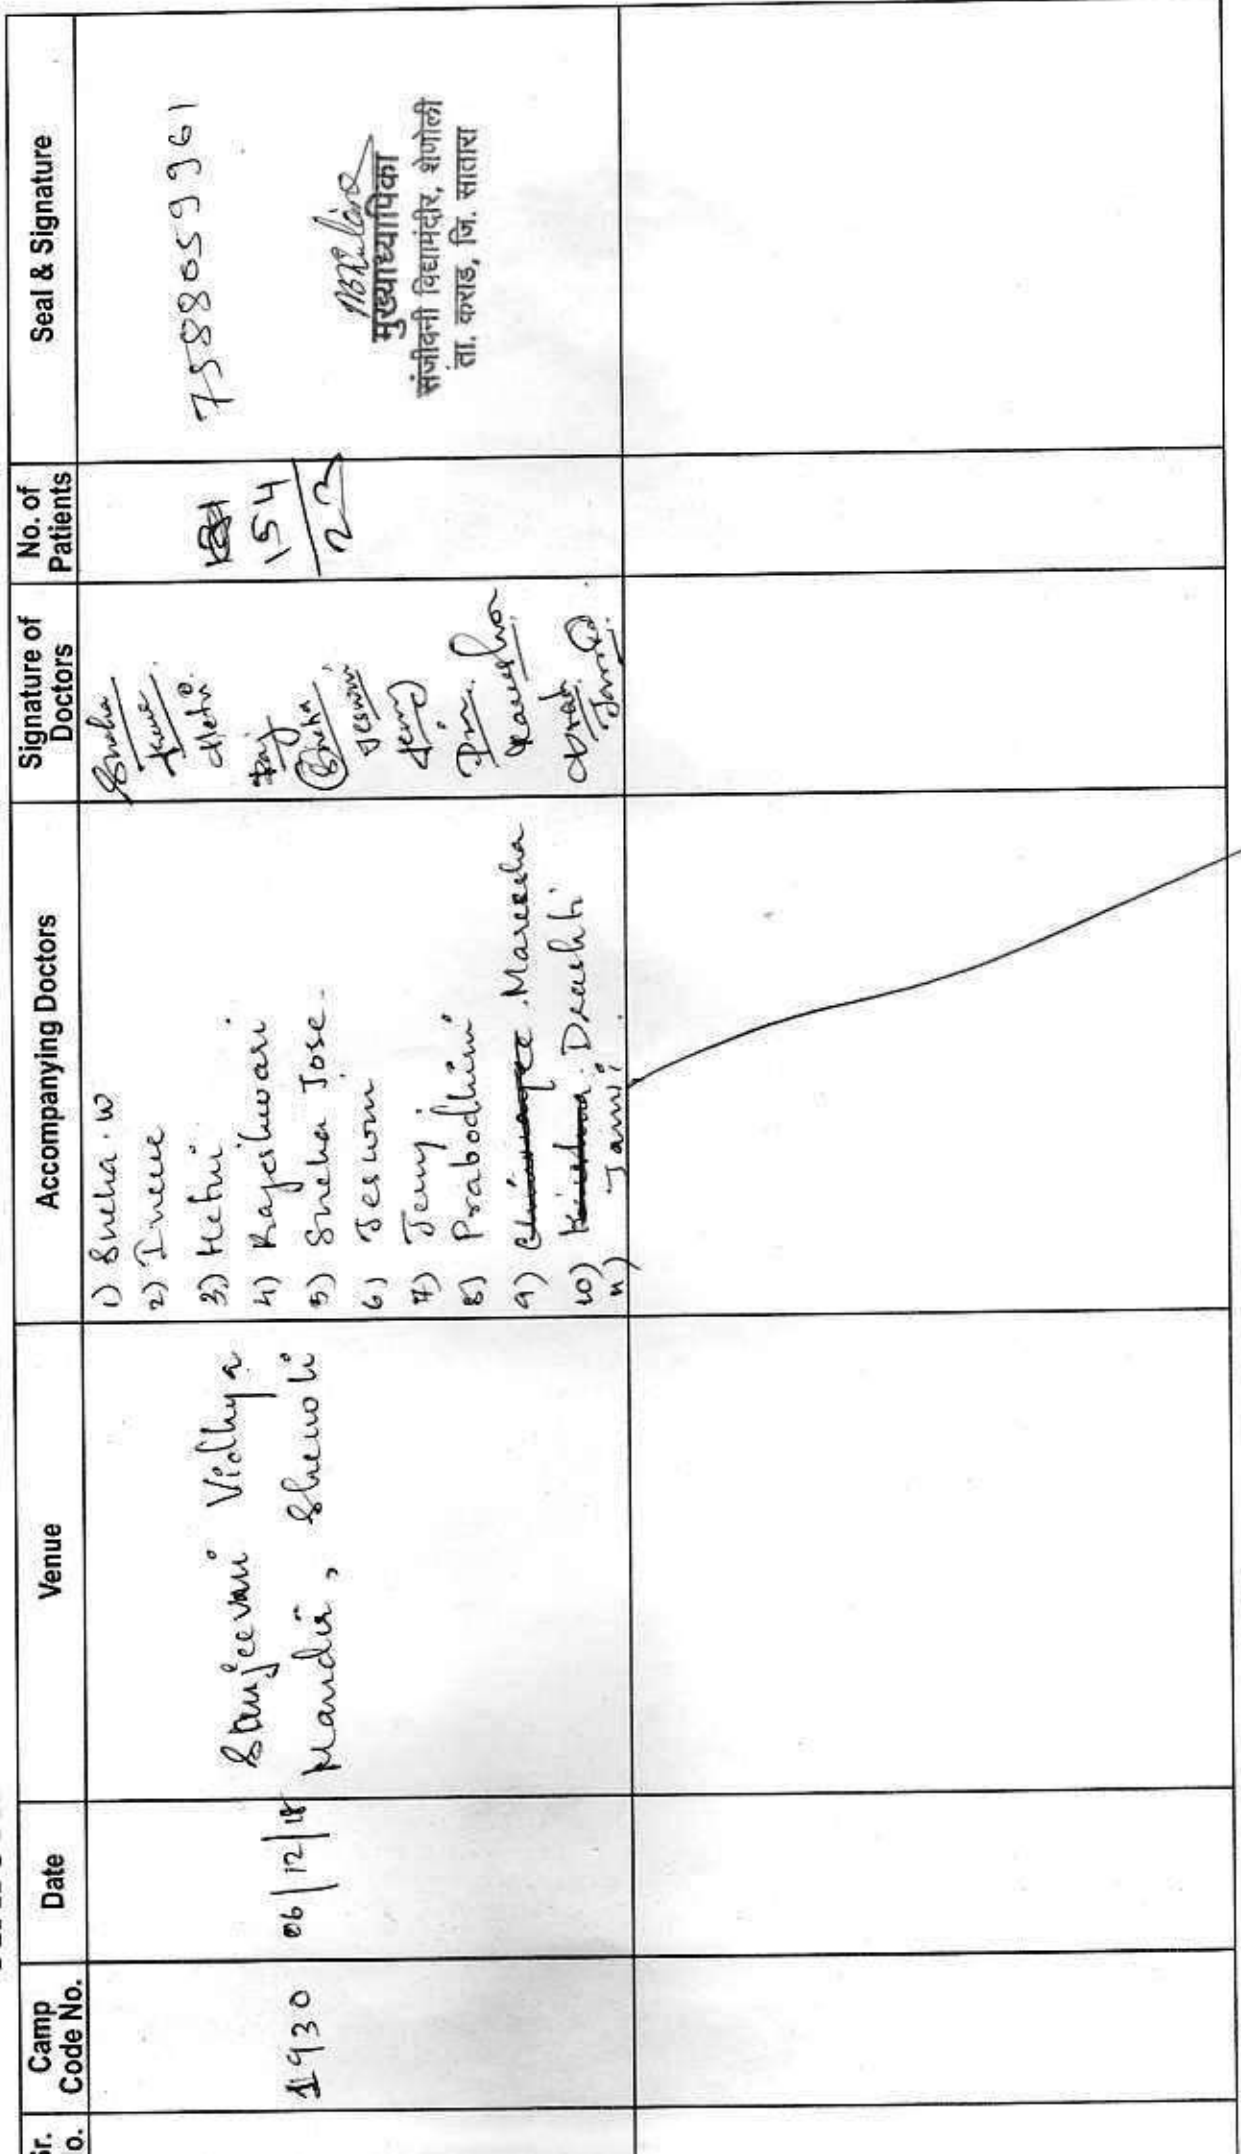 Camp
Code No.
Date
Venue
Accompanying Doctors
Signature of
Doctors
No. of
Patients
Seal & Signature
1930
06/12/18
Sanjeevani Vidhya
Mandir, Shenoli
1) Sneha. W
2) Irene
3) Hetvi
4) Rajeshwari
5) Sneha Jose
6) Jeswin
7) Jeny
8) Prabodhini
9) Mareesha
10) Drashti
11) Jamvi
Sneha
Hetvi
Raj
Sneha
Jeswin
Jeny
154
23
7588059961
मुख्याध्यापिका
संजीवनी विद्यामंदीर, शेणोली
ता. कराड, जि. सातारा